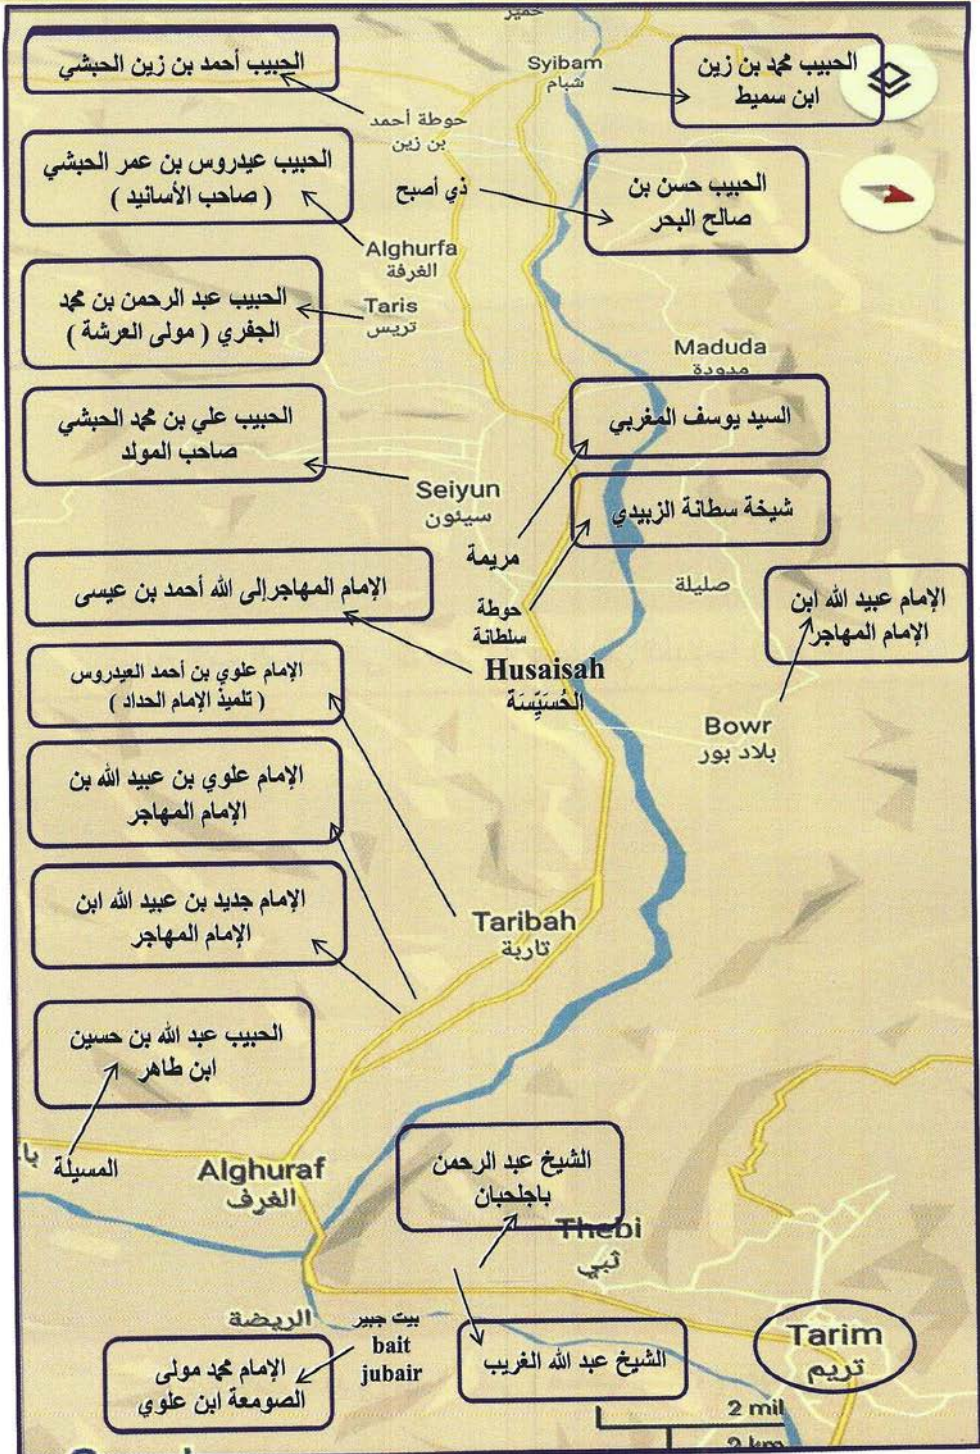 الحبيب أحمد بن زين الحبشي
Syibam
شبام
الحبيب محمد بن زين
ابن سميط
حوطة أحمد
بن زين
الحبيب عيدروس بن عمر الحبشي
( صاحب الأسانيد )
ذي أصبح
الحبيب حسن بن
صالح البحر
Alghurfa
الغرفة
الحبيب عبد الرحمن بن محمد
الجفري ( مولى العرشة )
Taris
تريس
Maduda
مدودة
الحبيب علي بن محمد الحبشي
صاحب المولد
السيد يوسف المغربي
Seiyun
سيئون
شيخة سطانة الزبيدي
مريمة
الإمام المهاجر إلى الله أحمد بن عيسى
صليلة
حوطة
سلطانة
الإمام عبيد الله ابن
الإمام المهاجر
Husaisah
الحُسَيِّسَة
الإمام علوي بن أحمد العيدروس
( تلميذ الإمام الحداد )
Bowr
بلاد بور
الإمام علوي بن عبيد الله بن
الإمام المهاجر
الإمام جديد بن عبيد الله ابن
الإمام المهاجر
Taribah
تاربة
الحبيب عبد الله بن حسين
ابن طاهر
المسيلة
Alghuraf
الغرف
الشيخ عبد الرحمن
باجلحبان
Thebi
ثبي
الريضة
بيت جبير
bait
jubair
الإمام محمد مولى
الصومعة ابن علوي
الشيخ عبد الله الغريب
Tarim
تريم
2 mil
2 km